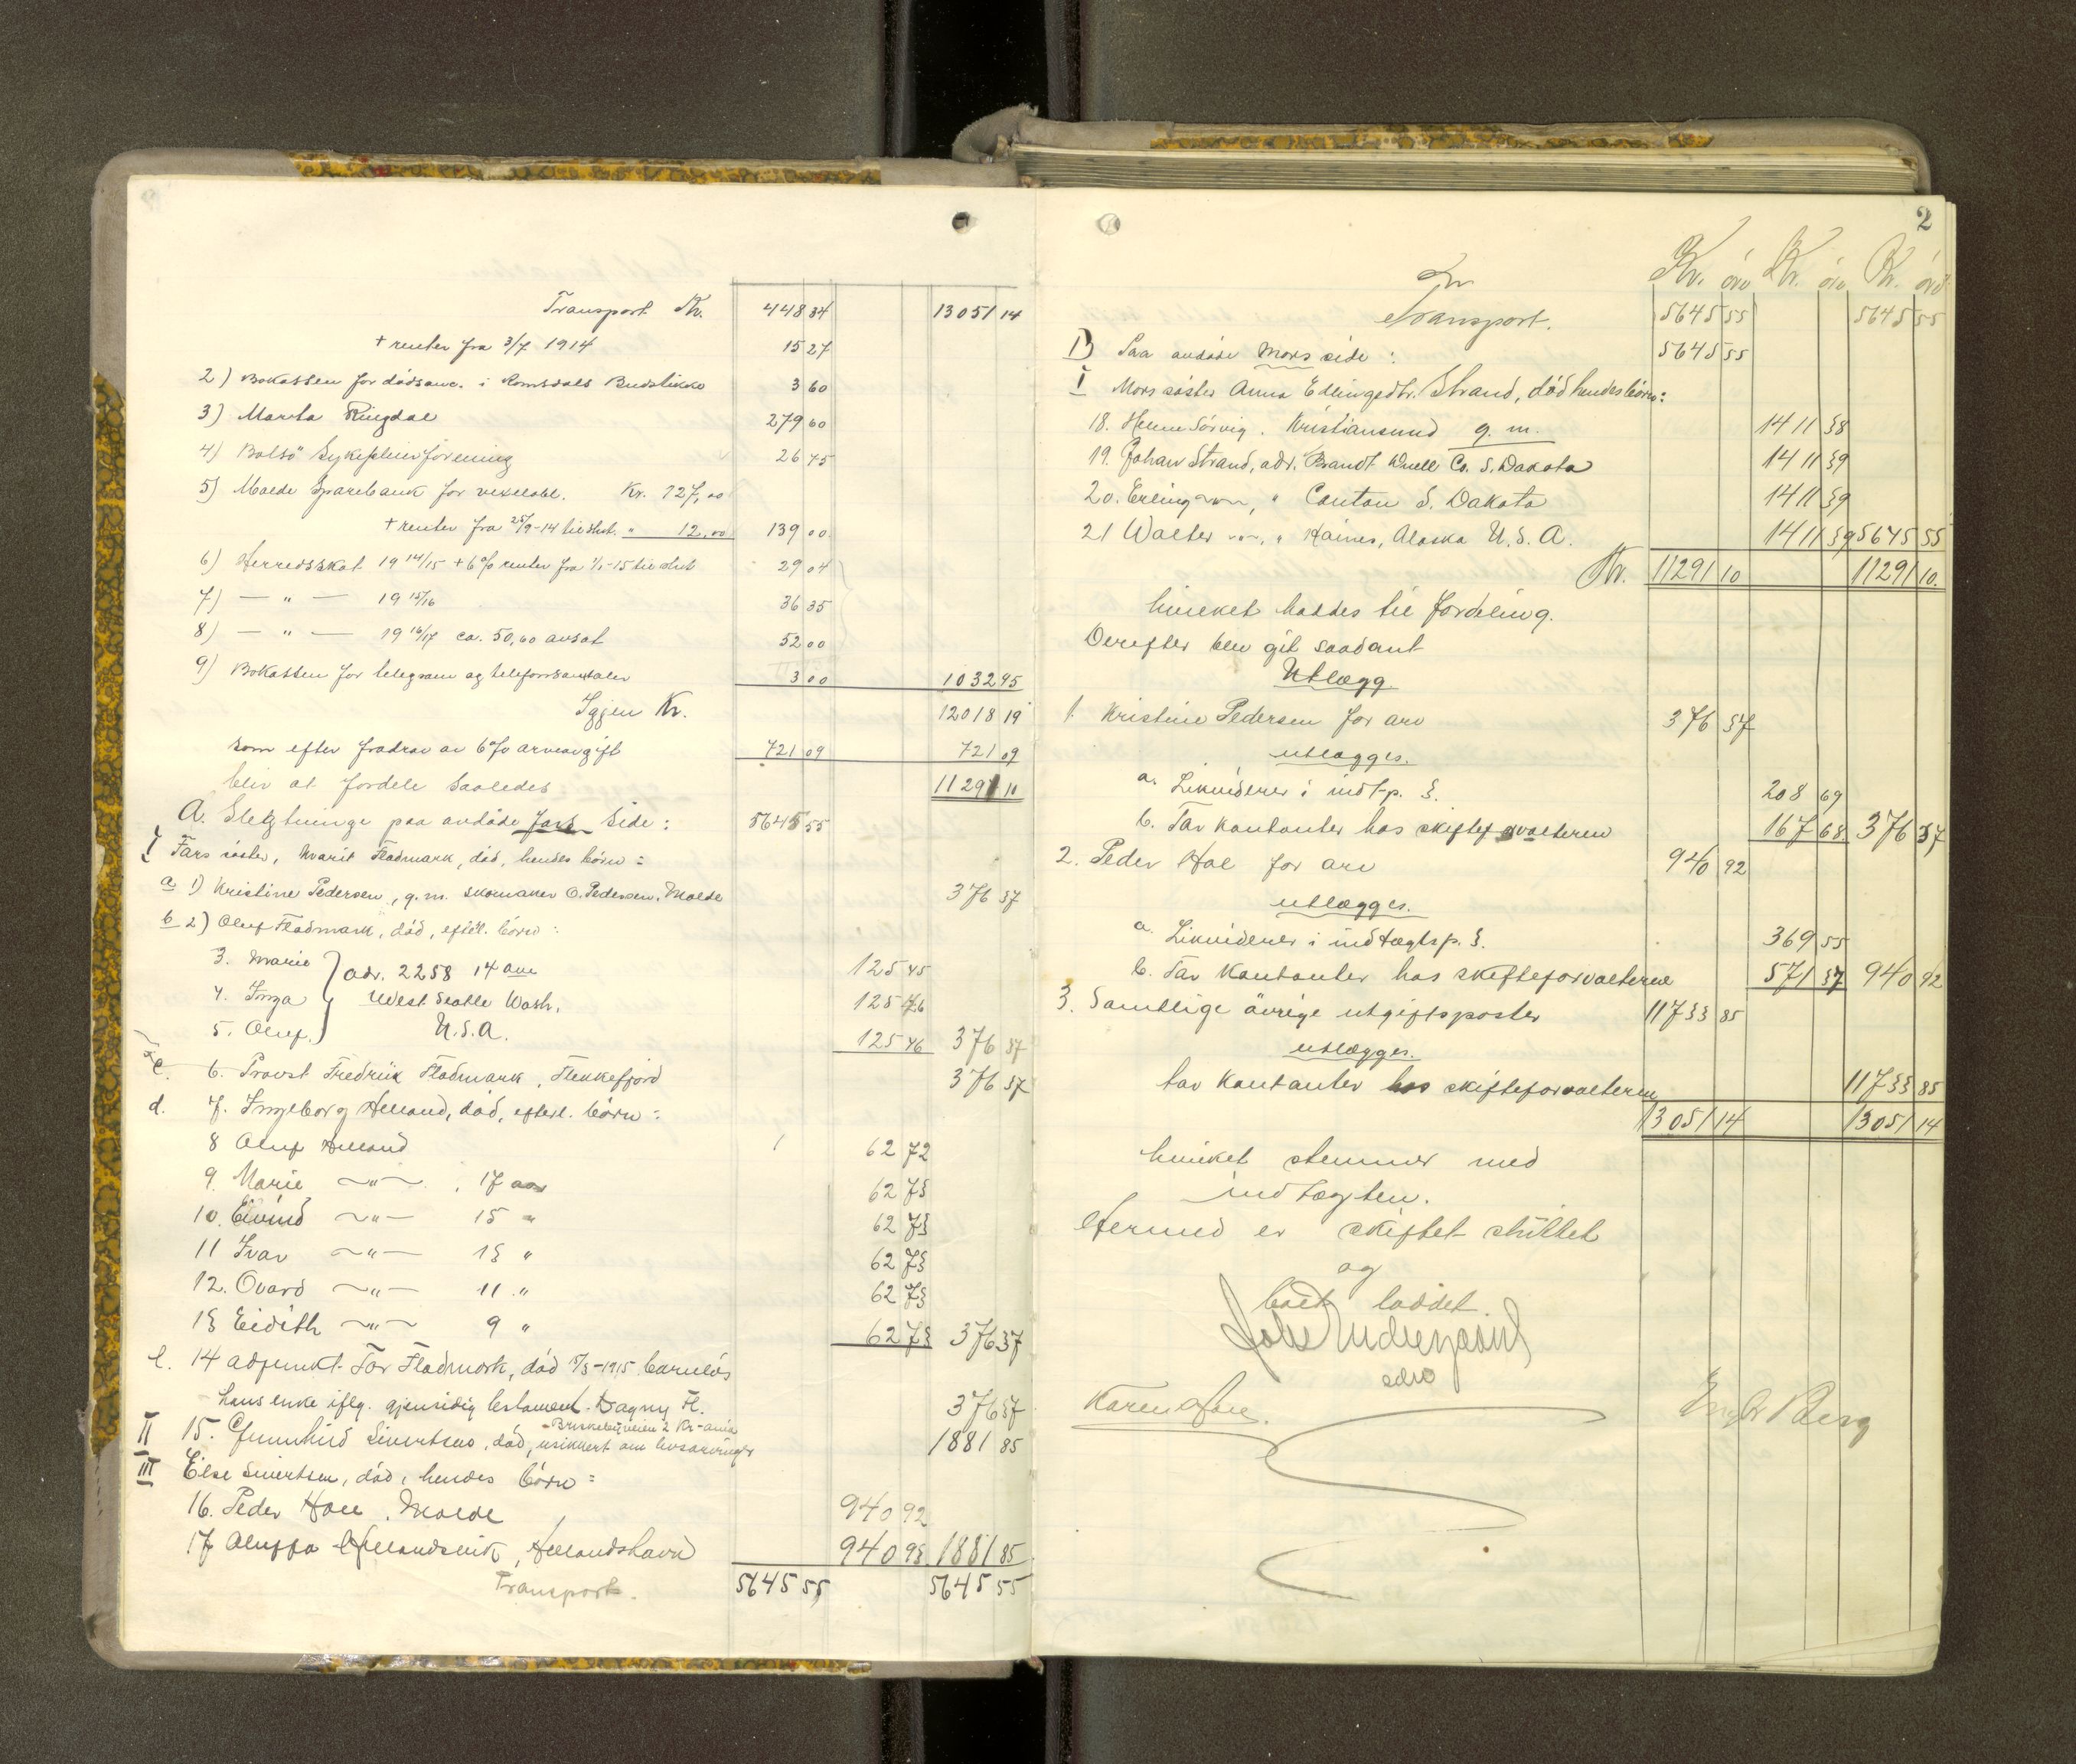 Transport Kr. 448 34 13051 14
+ renter fra 3/7 1914 15 27
2) Bokassen for dødsanv. i Romsdals Budstikke 3 60
3) Marta Ringdal 279 60
4) Bolsö Sykepleieforening 26 75
5) Molde Sparebank for vexelobl. Kr. 127,00
+ renter fra 25/9-14 til slut. " 12,00 139 00
6) Herredsskat 19 14/15 + 6% renter fra 1/1-15 til slut 29 04
7) — " — 19 15/16 36 35
8) — " — 19 16/17 ca. 50,00 avsat 52 00
9) Bokassen for telegram og telefonsamtaler 3 00 1032 95
Igjen Kr. 12018 19
som efter fradrav av 6% arveavgift 721 09 721 09
bliv at fordele saaledes 11291 10
A. Slegtninge paa avdøde Fars Side: 5645 55
I Fars søster, Marit Fladmark, død, hendes börn:
a 1) Kristine Pedersen, g.m. skomaker O. Pedersen, Molde 376 37
b 2) Oluf Fladmark, død, efterl. börn:
3. Marie } adr. 2258 14 ave 125 45
4. Inga West Seatle Wash. 125 46
5. Oluf. U.S.A. 125 46 376 37
c. 6. Provst Fredrik Fladmark, Flekkefjord 376 37
d. 7. Ingeborg Helland, död, efterl. börn:
8 Oluf Helland 62 72
9. Marie —"— , 17 aar 62 73
10. Eivind —"— 15 " 62 73
11 Ivar —"— 13 " 62 73
12. Ovard —"— 11 " 62 73
13 Eidith —"— 9 " 62 73 376 37
e. 14 adjunkt Tor Fladmark, död 15/3-1915 barnlös
hans enke iflg. gjensidig testament Dagny Fl. 376 37
- Briskebyveien 2 Kr-ania
II 15. Gunnhild Sivertsen, död, usikkert om livsarvinger 1881 85
III Else Sivertsen, död, hendes börn:
16. Peder Hoel, Molde 940 92
17 Oluffa Hellandsvik, Hellandshavn 940 93 1881 85
Transport. 5645 55 5645 55
2
Kr. öre Kr. öre Kr. öre
Transport. 5645 55 5645 55
B) Paa avdöde Mors side: 5645 55
I Mors söster Anna Erlingsdtr. Strand, död hendes börn:
18. Helene Sörvig. Kristiansund g.m. 1411 38
19. Johan Strand, adr. Brandt Duell Co. S. Dakota 1411 39
20. Erling —"—, " Canton S. Dakota 1411 39
21 Walter —"—, " Haines, Alaska U.S.A. 1411 39 5645 55
Kr. 11291 10 11291 10
hvilket haddes til fordeling.
Derefter blev git saadant
Utlægg
1. Kristine Pedersen for arv 376 37
utlægges.
a. Likviderer i indt.p. 3. 208 69
b. Tar kontanter hos skifteforvalteren 167 68 376 37
2. Peder Hoel for arv 940 92
utlægges.
a. Likviderer i indtægtsp. 3. 369 55
b. Tar kontanter hos skifteforvalteren 571 37 940 92
3. Samtlige övrige utgiftsposter 11733 85
utlægges.
tar kontanter hos skifteforvalteren 11733 85
13051 14 13051 14
hvilket stemmer med
indtægten.
Hermed er skiftet sluttet
og
boet